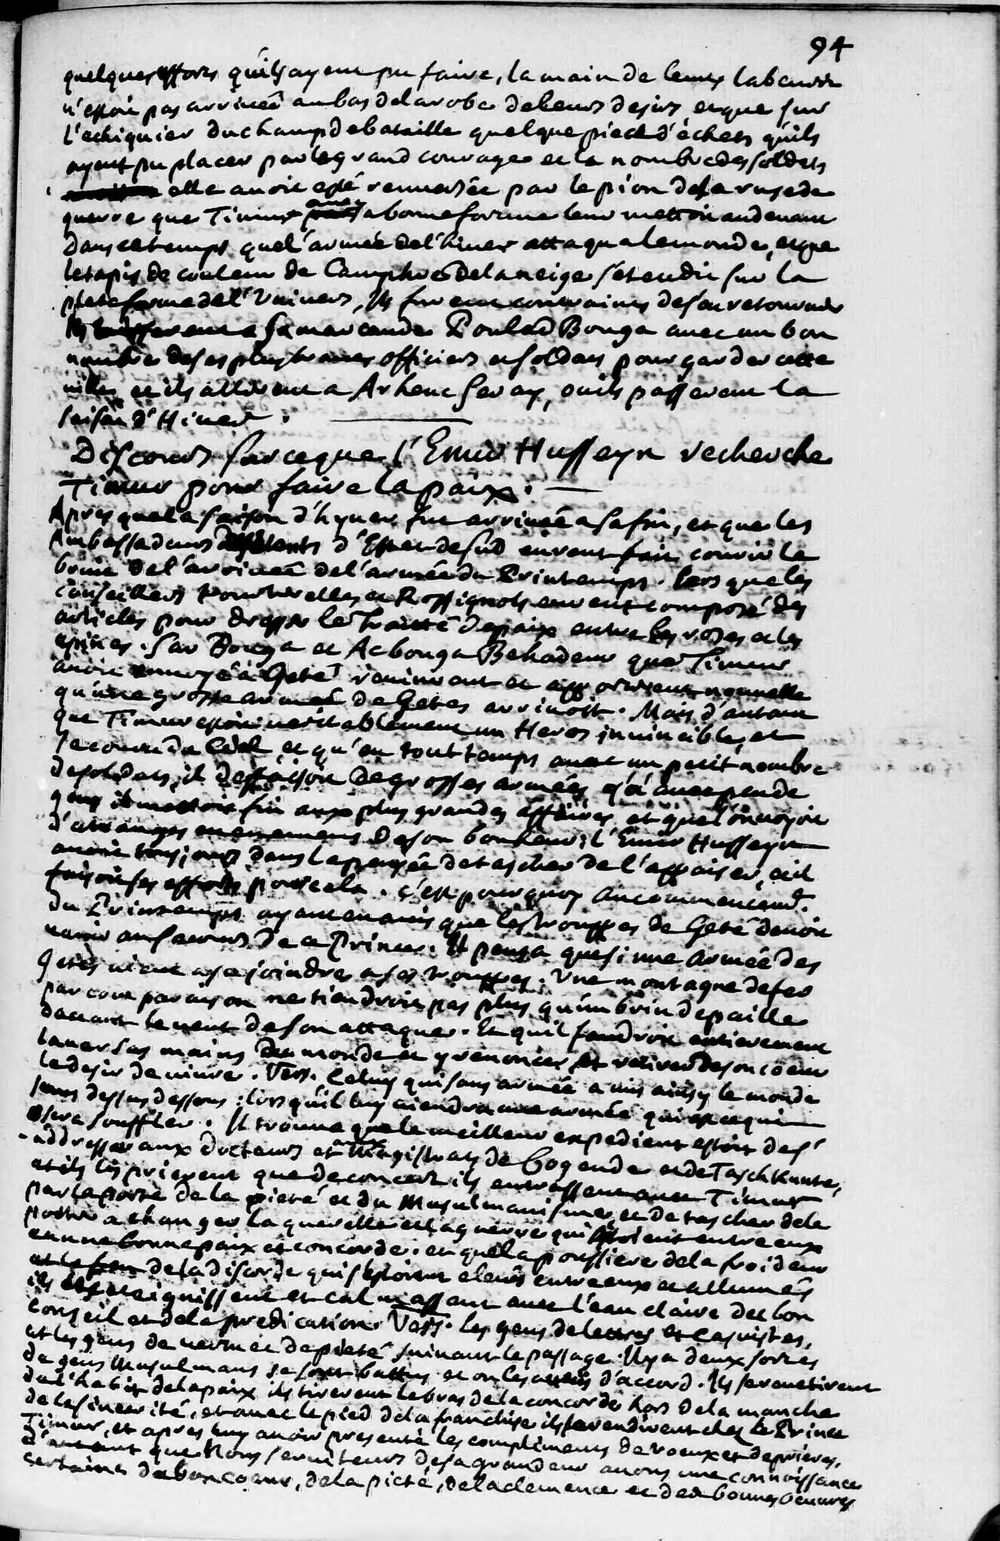 94
quelques efforts qu'ils ayent pu faire, la main de leurs labeurs
n'estoit pas arrivée au bas de la robe de leurs desirs et que sur
l'echiquier du champ de bataille quelque piece d'échecs qu'ils
ayent pu placer par le grand courage et le nombre des soldats
elle avoit esté renversée par le pion de la ruse de
guerre que Timur avec sa bonne fortune leur mettoit au devant
Dans ce temps que l'armée de l'hiver attaqua le monde, et que
le tapis de couleur de Camphre de la neige s'étendit sur la
plateforme de l'Univers, Ils furent contraints de s'en retourner
Ils laisserent a Samarcande Poulad Bouga avec un bon
nombre de ses plus braves officiers et soldats pour garder cette
ville, et ils allerent a Arhenc Seray, ou ils passerent la
saison d'Hiver.
Discours sur ce que l'Emir Husseyn recherche
Timur pour faire la paix.
Apres que la saison d'hyver fut arrivée a sa fin, et que les
Ambassadeurs d'Est et de Sud eurent fait courir le
bruit de l'arrivée de l'armée du Printemps. lors que les
conseillers Tourterelles et Rossignols eurent composé des
articles pour dresser le Traitté de paix entre les roses et les
epines. Sar Bouga et Acbouga Behadeur que Timur
avoit envoyé a Geté revinrent et apporterent nouvelle
qu'une grosse armée de Getes arrivoit. Mais d'autant
que Timur estoit veritablement un Heros invincible, et
secouru du Ciel, et qu'en tout temps avec un petit nombre
de soldats, il deffaisoit de grosses armées et qu'avec peu de
gens il mettoit fin aux plus grandes affaires, et que l'on voyoit
d'etranges evenemens de son bonheur; l'Emir Husseyn
avoit toujours dans la pensée de tascher de l'appaiser, et il
faisoit ses efforts pour cela. C'est pourquoy au commencemt.
du Printemps ayant eu avis que les trouppes de Geté devoit
venir au secours de ce Prince. Il pensa que si une armée des
Getes vient a se joindre a ses trouppes. Une montagne de fer
par comparaison ne tiendroit pas plus qu'un brin de paille
devant le vent de son attaque. Et qu'il faudroit entierement
laver ses mains du monde et y renoncer, et retirer de son coeur
le desir de vivre. Vers. Celuy qui sans armée a mis ainsy le monde
sens dessus dessous; lors qu'il luy viendra une armée qui est ce qui
osera souffler. Il trouva que le meilleur expedient estoit de s'
addresser aux docteurs et aux Magistrats de Cogende et de Taschkunte,
et ils les prierent que de concert ils entrassent avec Timur
par la porte de la pieté et du Musulmanisme, et de tascher de le
porter a changer la querelle et la guerre qui estoient entre eux
en une bonne paix et concorde. et que la poussiere de la froideur
et le feu de la discorde qui s'estoient elevés entre eux et allumés
ils les eteignissent et calmassent avec l'eau claire du bon
conseil et de la predication. Vers. Les gens de lettres et casuistes,
et les gens de vertu et de pieté suivant le passage. Il y a deux sortes
de gens Musulmans se sont battus et on les a mis d'accord. Ils se revetirent
de l'habit de la paix ils tirerent le bras de la concorde hors de la manche
de la sincerité, et avec le pied de la franchise ils se rendirent chez le Prince
Timur, et apres luy avoir presenté les complimens de voeux et de prieres.
d'autant que Nous serviteurs de sa grandeur avons une connoissance
certaine du bon coeur, de la pieté, de la clemence et des bonnes oeuvres